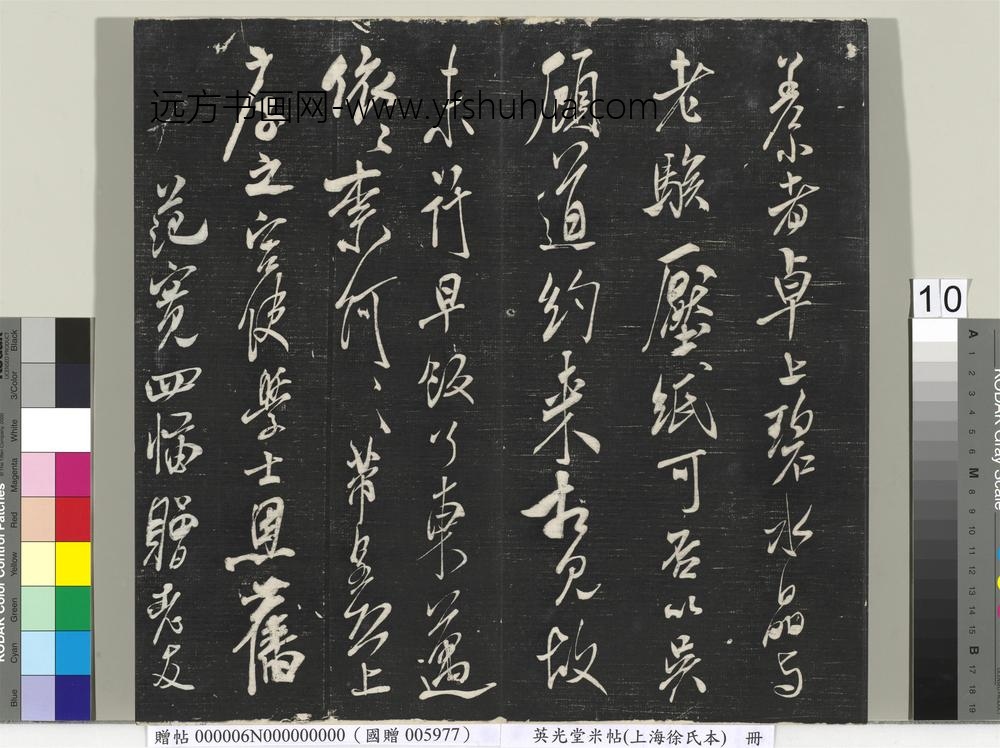 者卓上碧水晶与
老壓紙可否以吳
顧道約来相見故
未行早飯了東邁
依々奈何々々芾皇恐上
彦之官使學士恩舊
范寬四幅贈老友
远方书画网-www.yfshuhua.com
10
贈帖 000006N000000000（國贈 005977）
英光堂米帖(上海徐氏本) 冊
KODAK Color Control Patches
Blue Cyan Green Yellow Red Magenta White 3/Color Black
KODAK Gray Scale
A 1 2 3 4 5 6 M 8 9 10 11 12 13 14 15 B 17 18 19